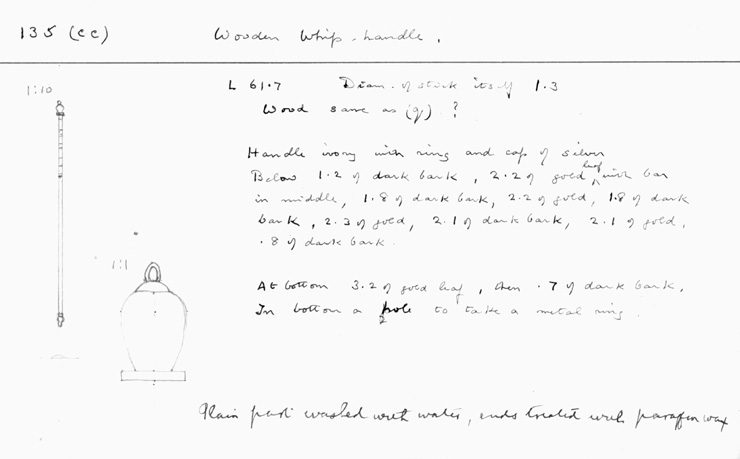 135 (cc) Wooden Whip-handle.
1:10
L 61.7 Diam. of stock itself 1.3
Wood same as (q) ?
Handle ivory with ring and cap of silver
Below 1.2 of dark bark, 2.2 of gold leaf with bar
in middle, 1.8 of dark bark, 2.2 of gold, 1.8 of dark
bark, 2.3 of gold, 2.1 of dark bark, 2.1 of gold,
.8 of dark bark.
1:1
At bottom 3.2 of gold leaf, then .7 of dark bark.
In bottom a hole to take a metal ring.
Plain part washed with water, ends treated with paraffin wax